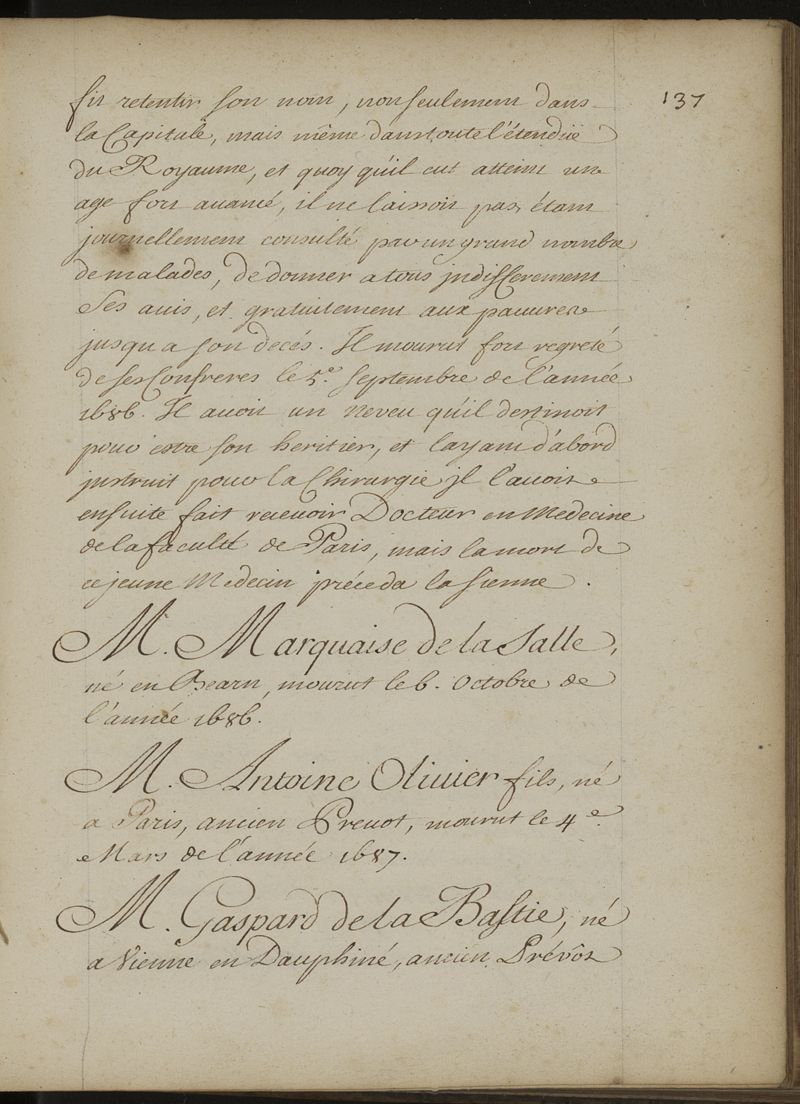 137
fit retentir son nom, non seulement dans
la Capitale, mais même dans toute l'étenduë
du Royaume, et quoy qu'il eut atteint un
age fort auancé, il ne laissoit pas, étant
journellement consulté par un grand nombre
de malades, de donner a tous jndifferement
Ses auis, et gratuitement aux pauures
jusqu'a son decés. Il mourut fort regreté
de ses Confreres le 5.e Septembre de l'année
1686. Il auoit un Neveu qu'il destinoit
pour estre son heritier, et layant d'abord
jnstruit pour la Chirurgie jl l'auoit
ensuite fait receuoir Docteur en Medecine
de la faculté de Paris, mais la mort de
ce jeune Medecin préceda la sienne.
M. Marquaise de la Salle,
né en Bearn, mourut le 6. Octobre de
l'année 1686.
M. Antoine Oliuier fils, né
a Paris, ancien Preuot, mourut le 4e.
Mars de l'année 1687.
M. Gaspard de la Bastie, né
a Vienne en Dauphiné, ancien Prévôt